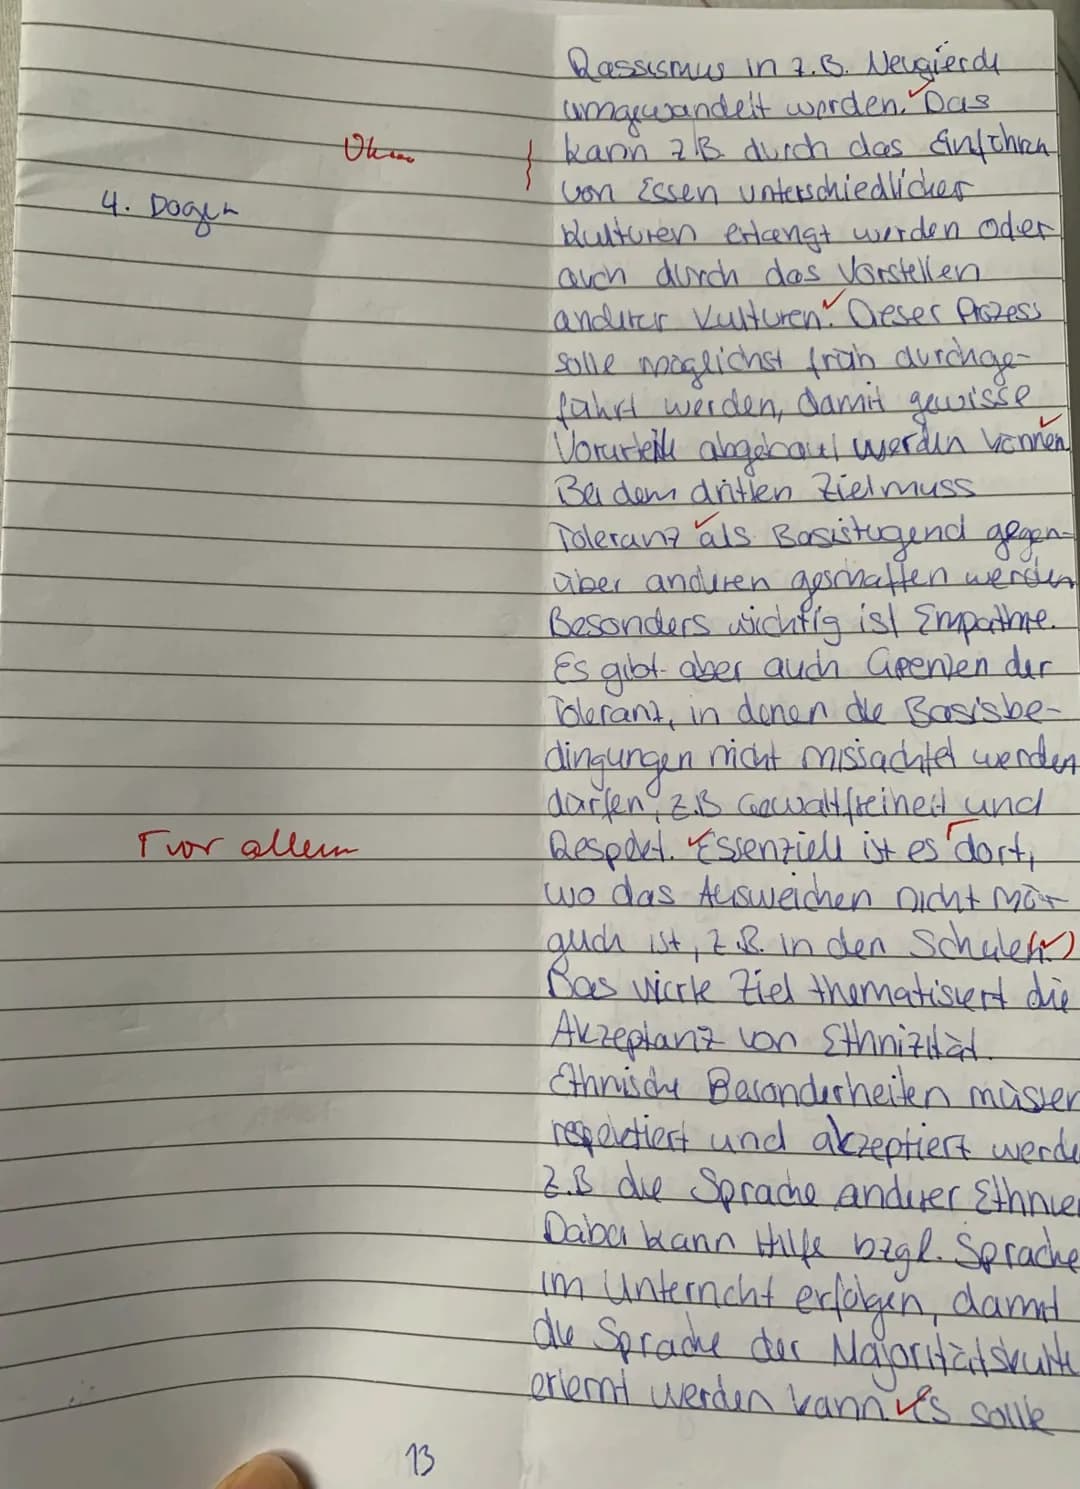 Rassismus in z.B. Neugierde
umgewandelt werden. Das
kann z.B. durch das Einführen
von Essen unterschiedlicher
4. Bogen
Kulturen erlangt werden oder
auch durch das Vorstellen
anderer Kulturen. Dieser Prozess
solle möglichst früh durchge-
führt werden, damit gewisse
Vorurteile abgebaut werden können
Bei dem dritten Ziel muss
Toleranz als Basistugend gegen-
über anderen geschaffen werden
Besonders wichtig ist Empathie.
Es gibt aber auch Grenzen der
Toleranz, in denen die Basisbe-
dingungen nicht missachtet werden
dürfen, z.B Gewaltfreiheit und
Γ vor allem
Respekt. Essenziell ist es Γ dort,
wo das Ausweichen nicht mög-
lich ist, z.B. in den Schulen.
Das vierte Ziel thematisiert die
Akzeptanz von Ethnizität.
Ethnische Besonderheiten müssen
respektiert und akzeptiert werde
z.B die Sprache anderer Ethnie
Dabei kann Hilfe bzgl. Sprache
im Unterricht erfolgen, damit
die Sprache der Majoritätskultu
erlernt werden kann. Es solle
13